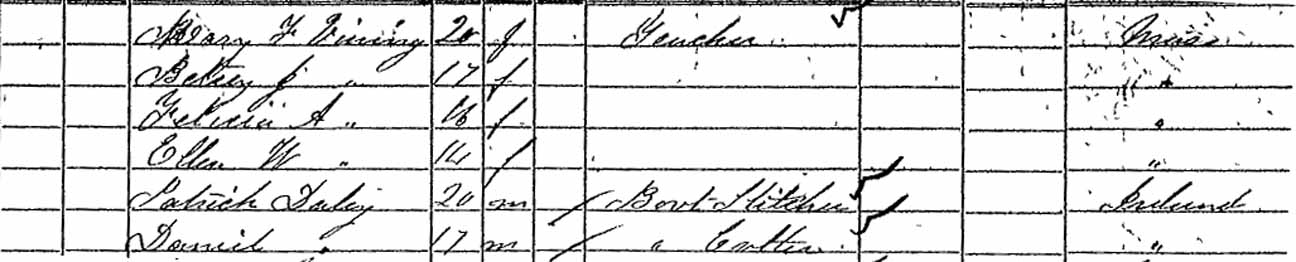 Mary F Vining 20 f Teacher Mass
Betsey J " 17 f "
Felicia A " 16 f "
Ellen W " 14 f "
Patrick Daley 20 m / Boot Stitcher Ireland
Daniel " 17 m / " Cutter "